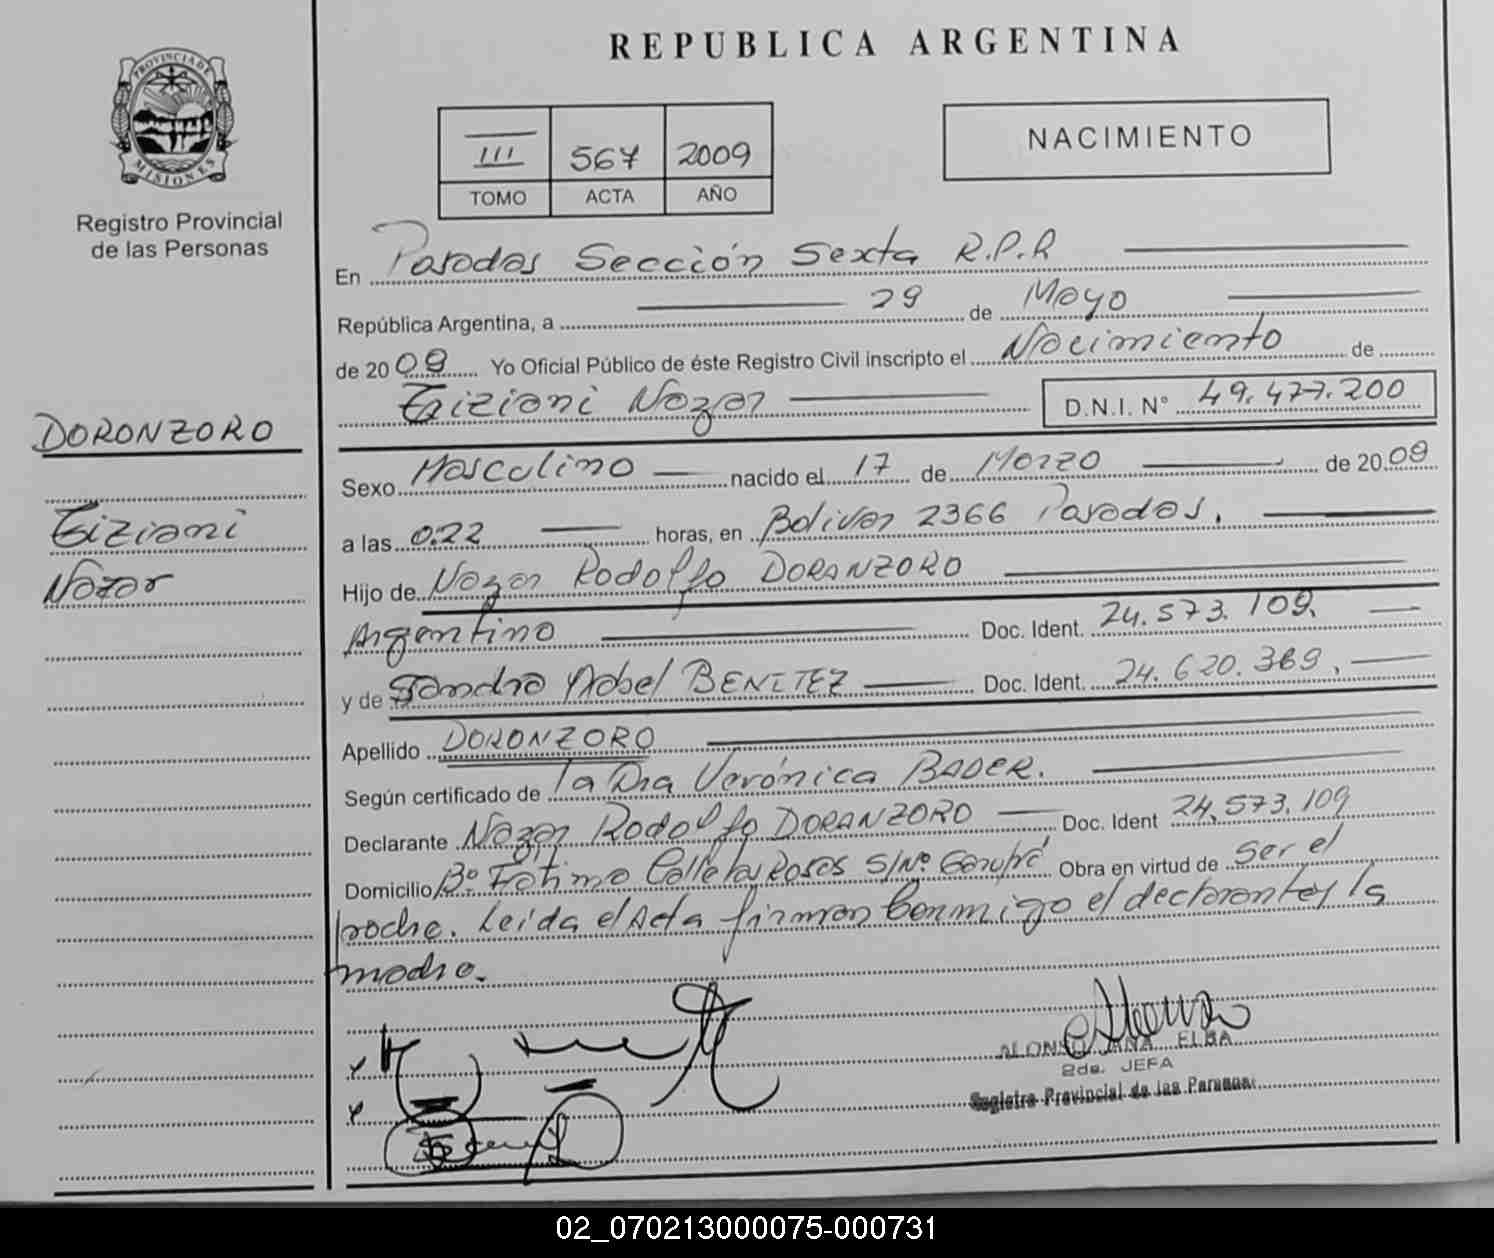 REPUBLICA ARGENTINA
PROVINCIA DE
MISIONES
Registro Provincial
de las Personas
III 567 2009
TOMO ACTA AÑO
NACIMIENTO
En Posadas Sección Sexta R.P.R
República Argentina, a 29 de Mayo
de 2009 Yo Oficial Público de éste Registro Civil inscripto el Nacimiento de
Tiziani Nazar D.N.I. N° 49.477.200
DORONZORO
Tiziani
Nazar
Sexo Masculino nacido el 17 de Marzo de 2009
a las 0.22 horas, en Bolivar 2366 Posadas.
Hijo de Nazar Rodolfo DORANZORO
Argentino Doc. Ident. 24.573.109.
y de Sandra Mabel BENITEZ Doc. Ident. 24.620.369.
Apellido DORONZORO
Según certificado de la Dra Verónica BADER.
Declarante Nazar Rodolfo DORANZORO Doc. Ident 24.573.109
Domicilio B° Fatima Calle las Rosas S/N° Garupá Obra en virtud de ser el
padre. Leída el Acta firman Conmigo el declarante y la
madre.
ALONSO ANA ELBA
2da. JEFA
Registro Provincial de las Personas
02_070213000075-000731